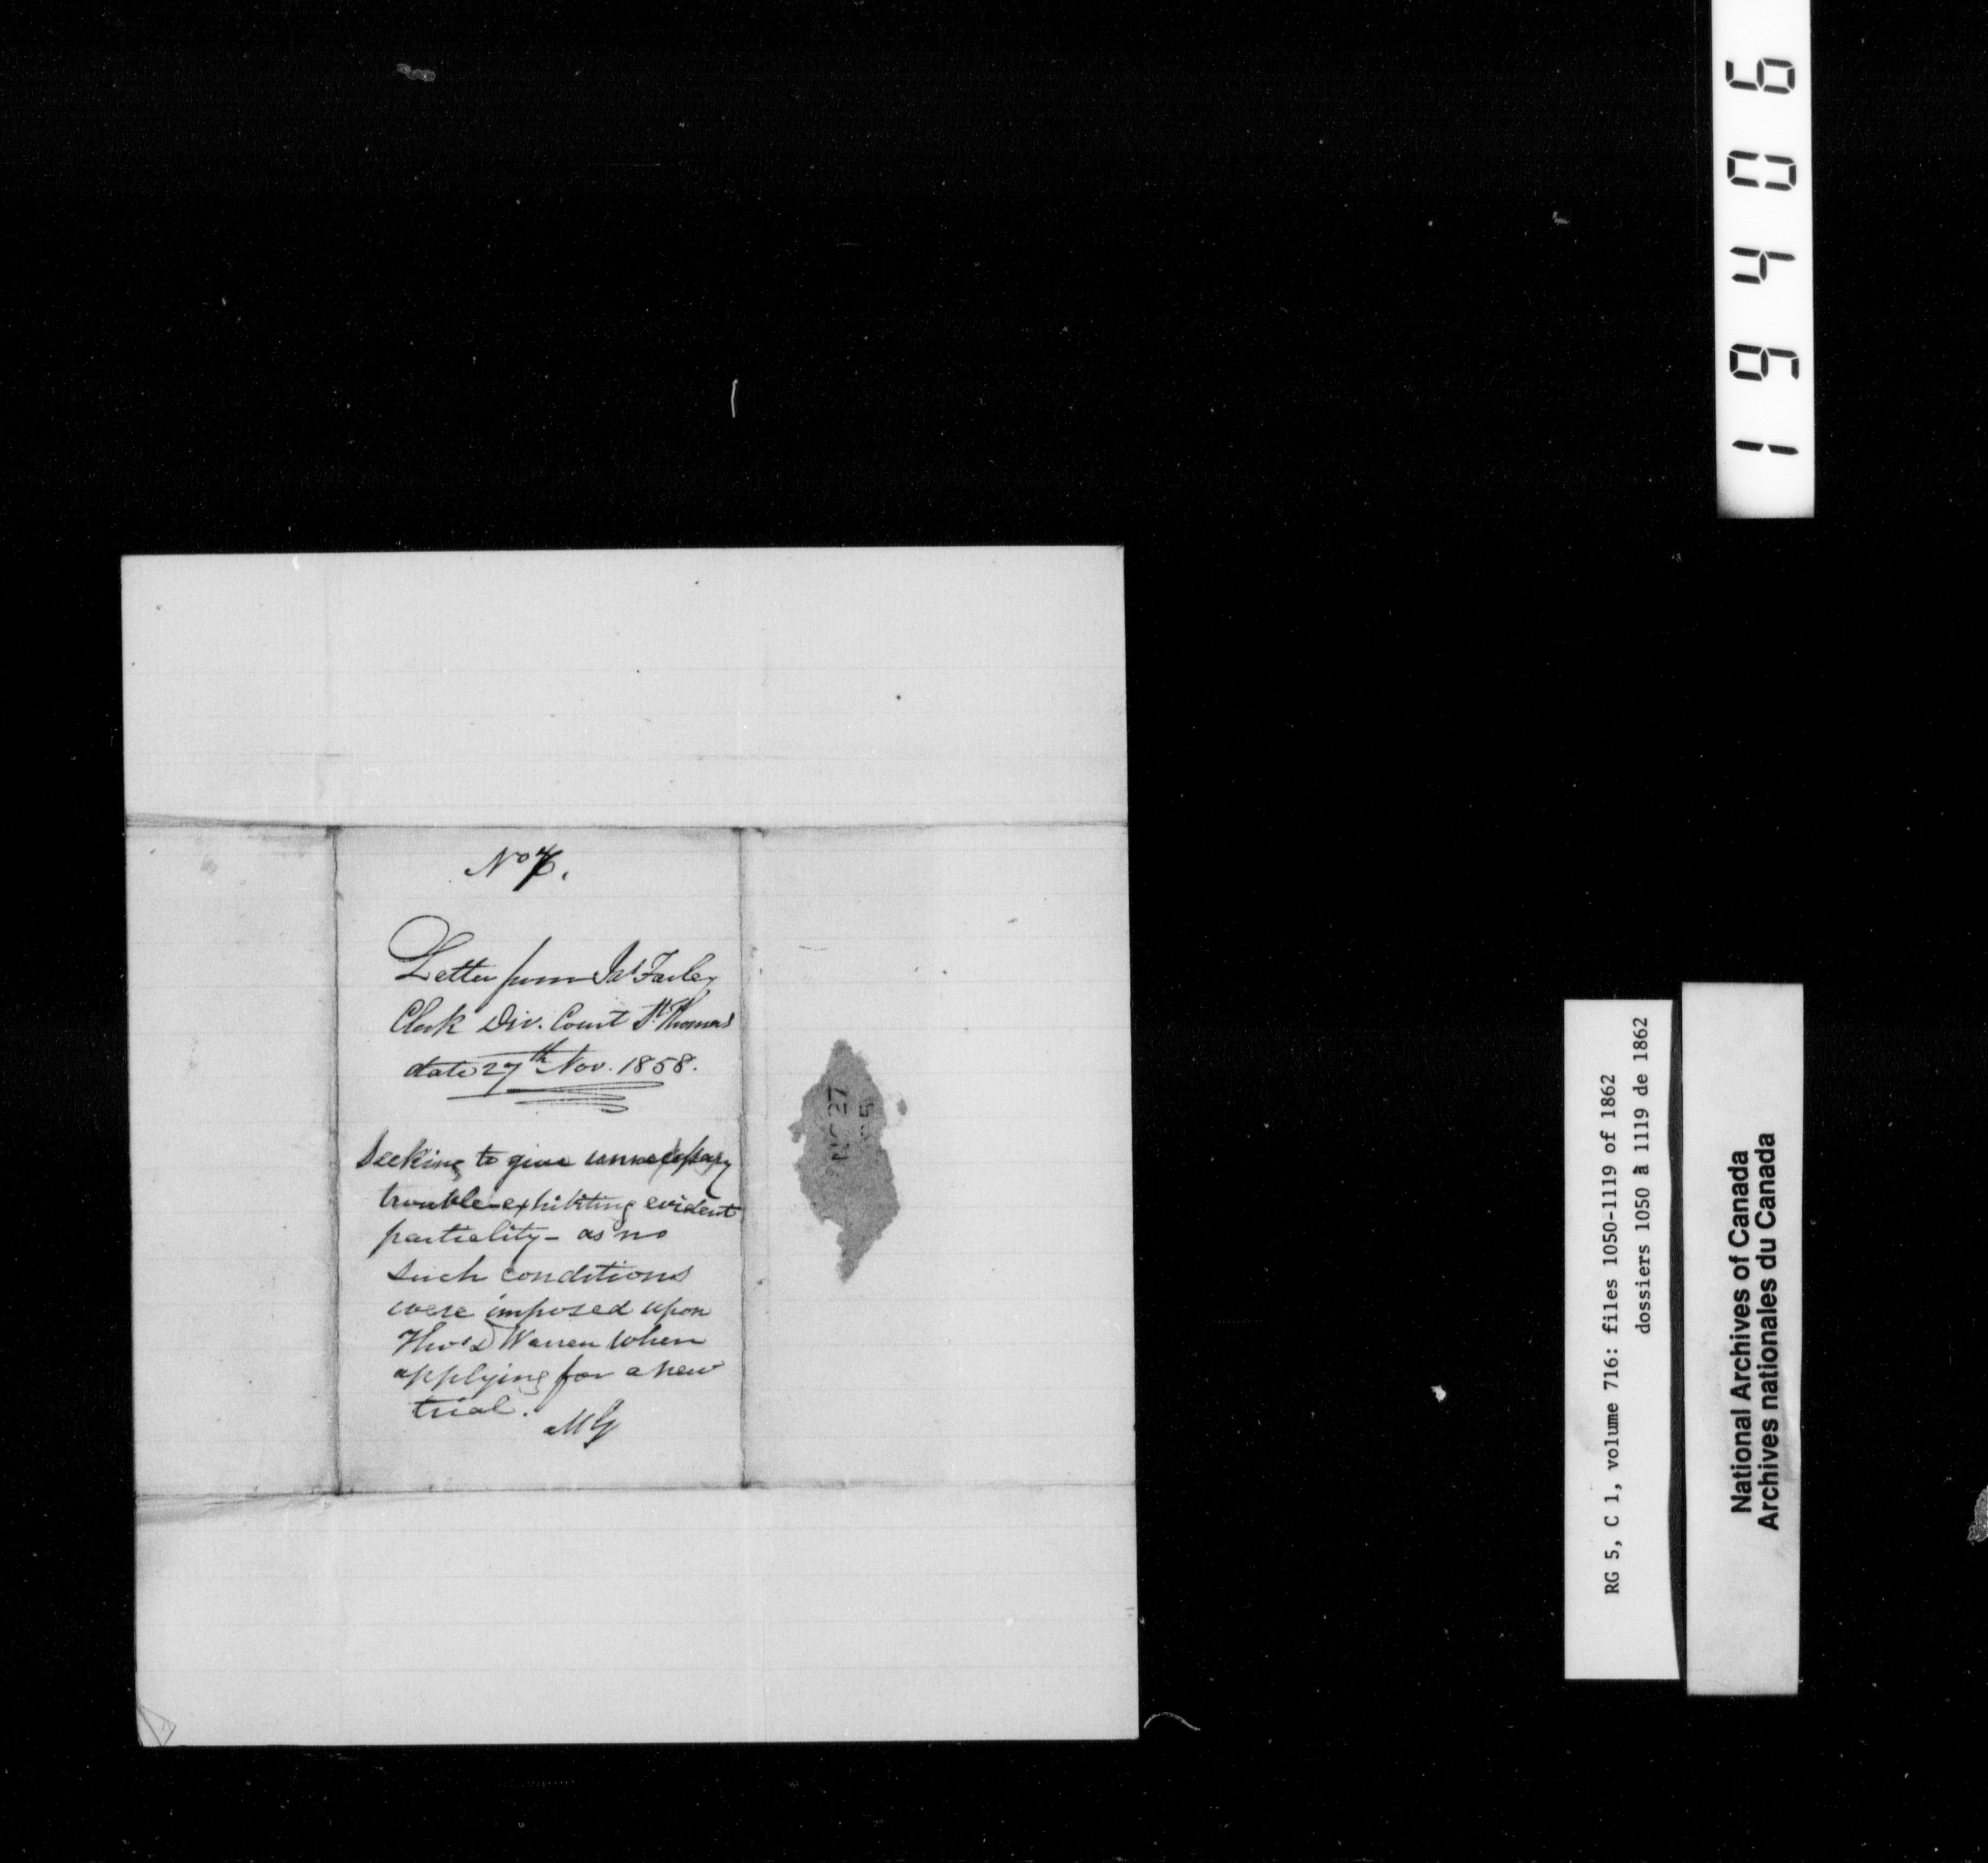 No 6.
Letter from Jas Farley
Clerk Div. Court St. Thomas
date 27th Nov. 1858.
Seeking to give unnecessary
trouble - exhibiting evident
partiality - as no
such conditions
were imposed upon
Thos D Warren when
applying for a new
trial.
MG
27
19406
RG 5, C 1, volume 716: files 1050-1119 of 1862
dossiers 1050 à 1119 de 1862
National Archives of Canada
Archives nationales du Canada